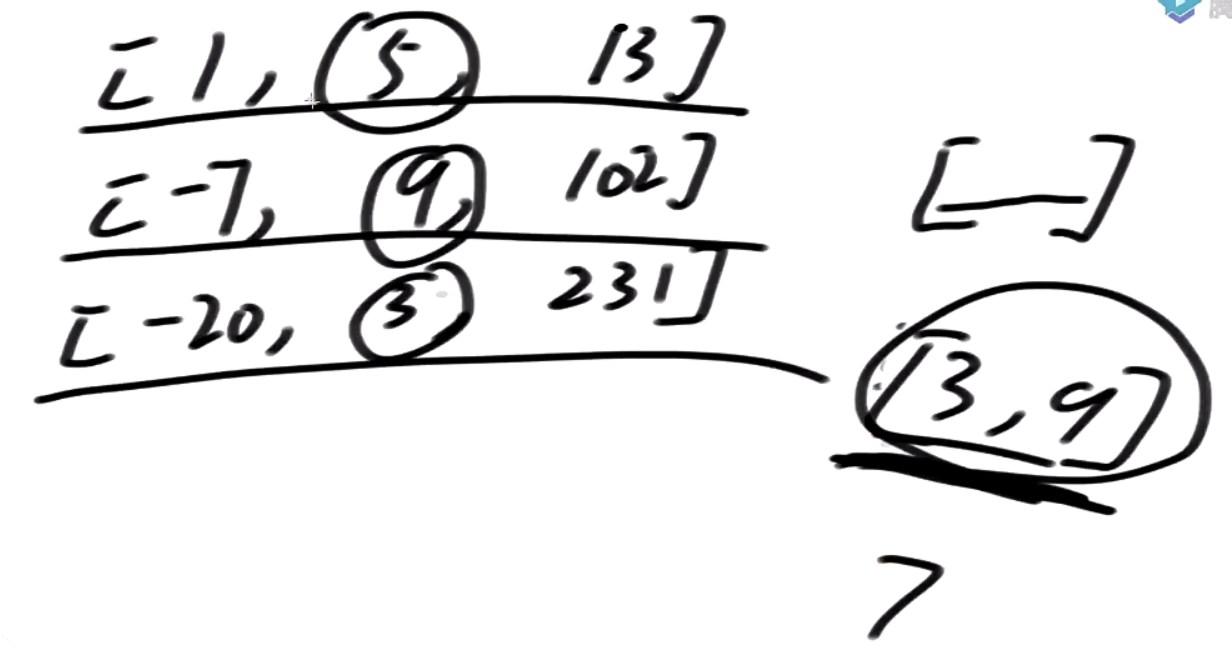 [1, 5, 13]
[-7, 9, 102]
[-20, 3 231]
[ ]
[3, 9]
7